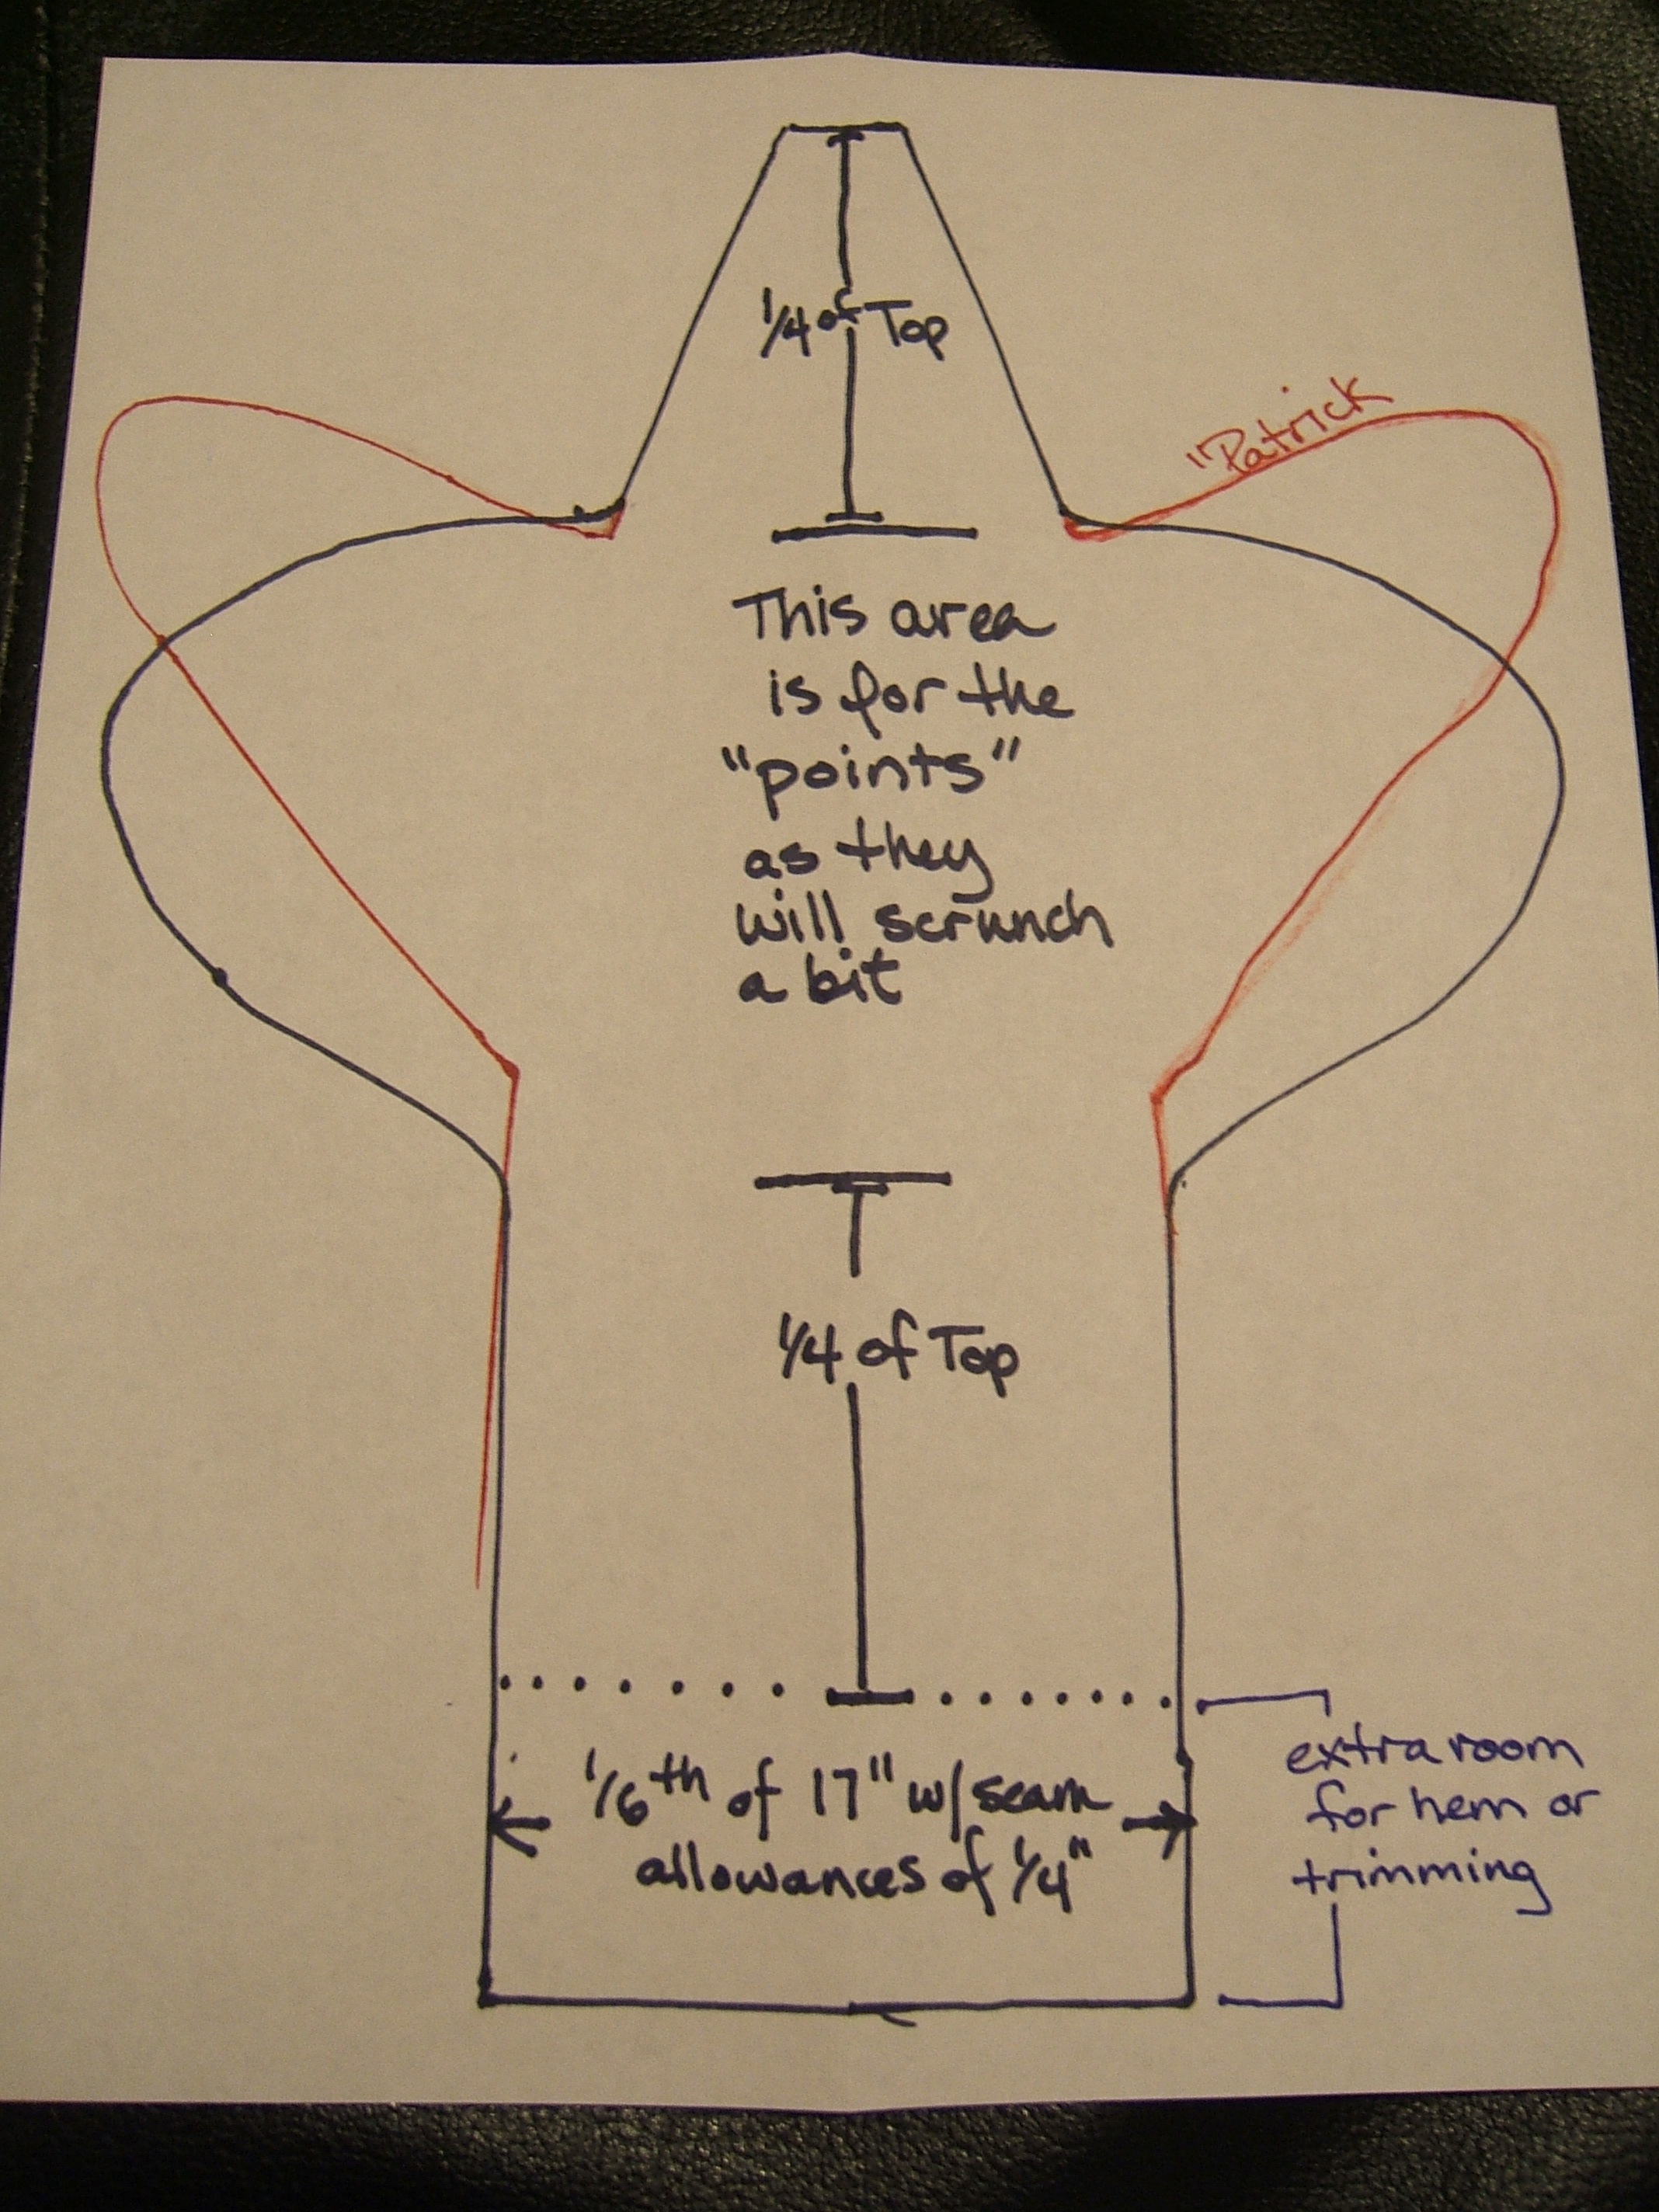 1/4 of Top
"Patrick
This area
is for the
"points"
as they
will scrunch
a bit
1/4 of Top
1/6th of 17" w/ seam
allowances of 1/4"
extra room
for hem or
trimming